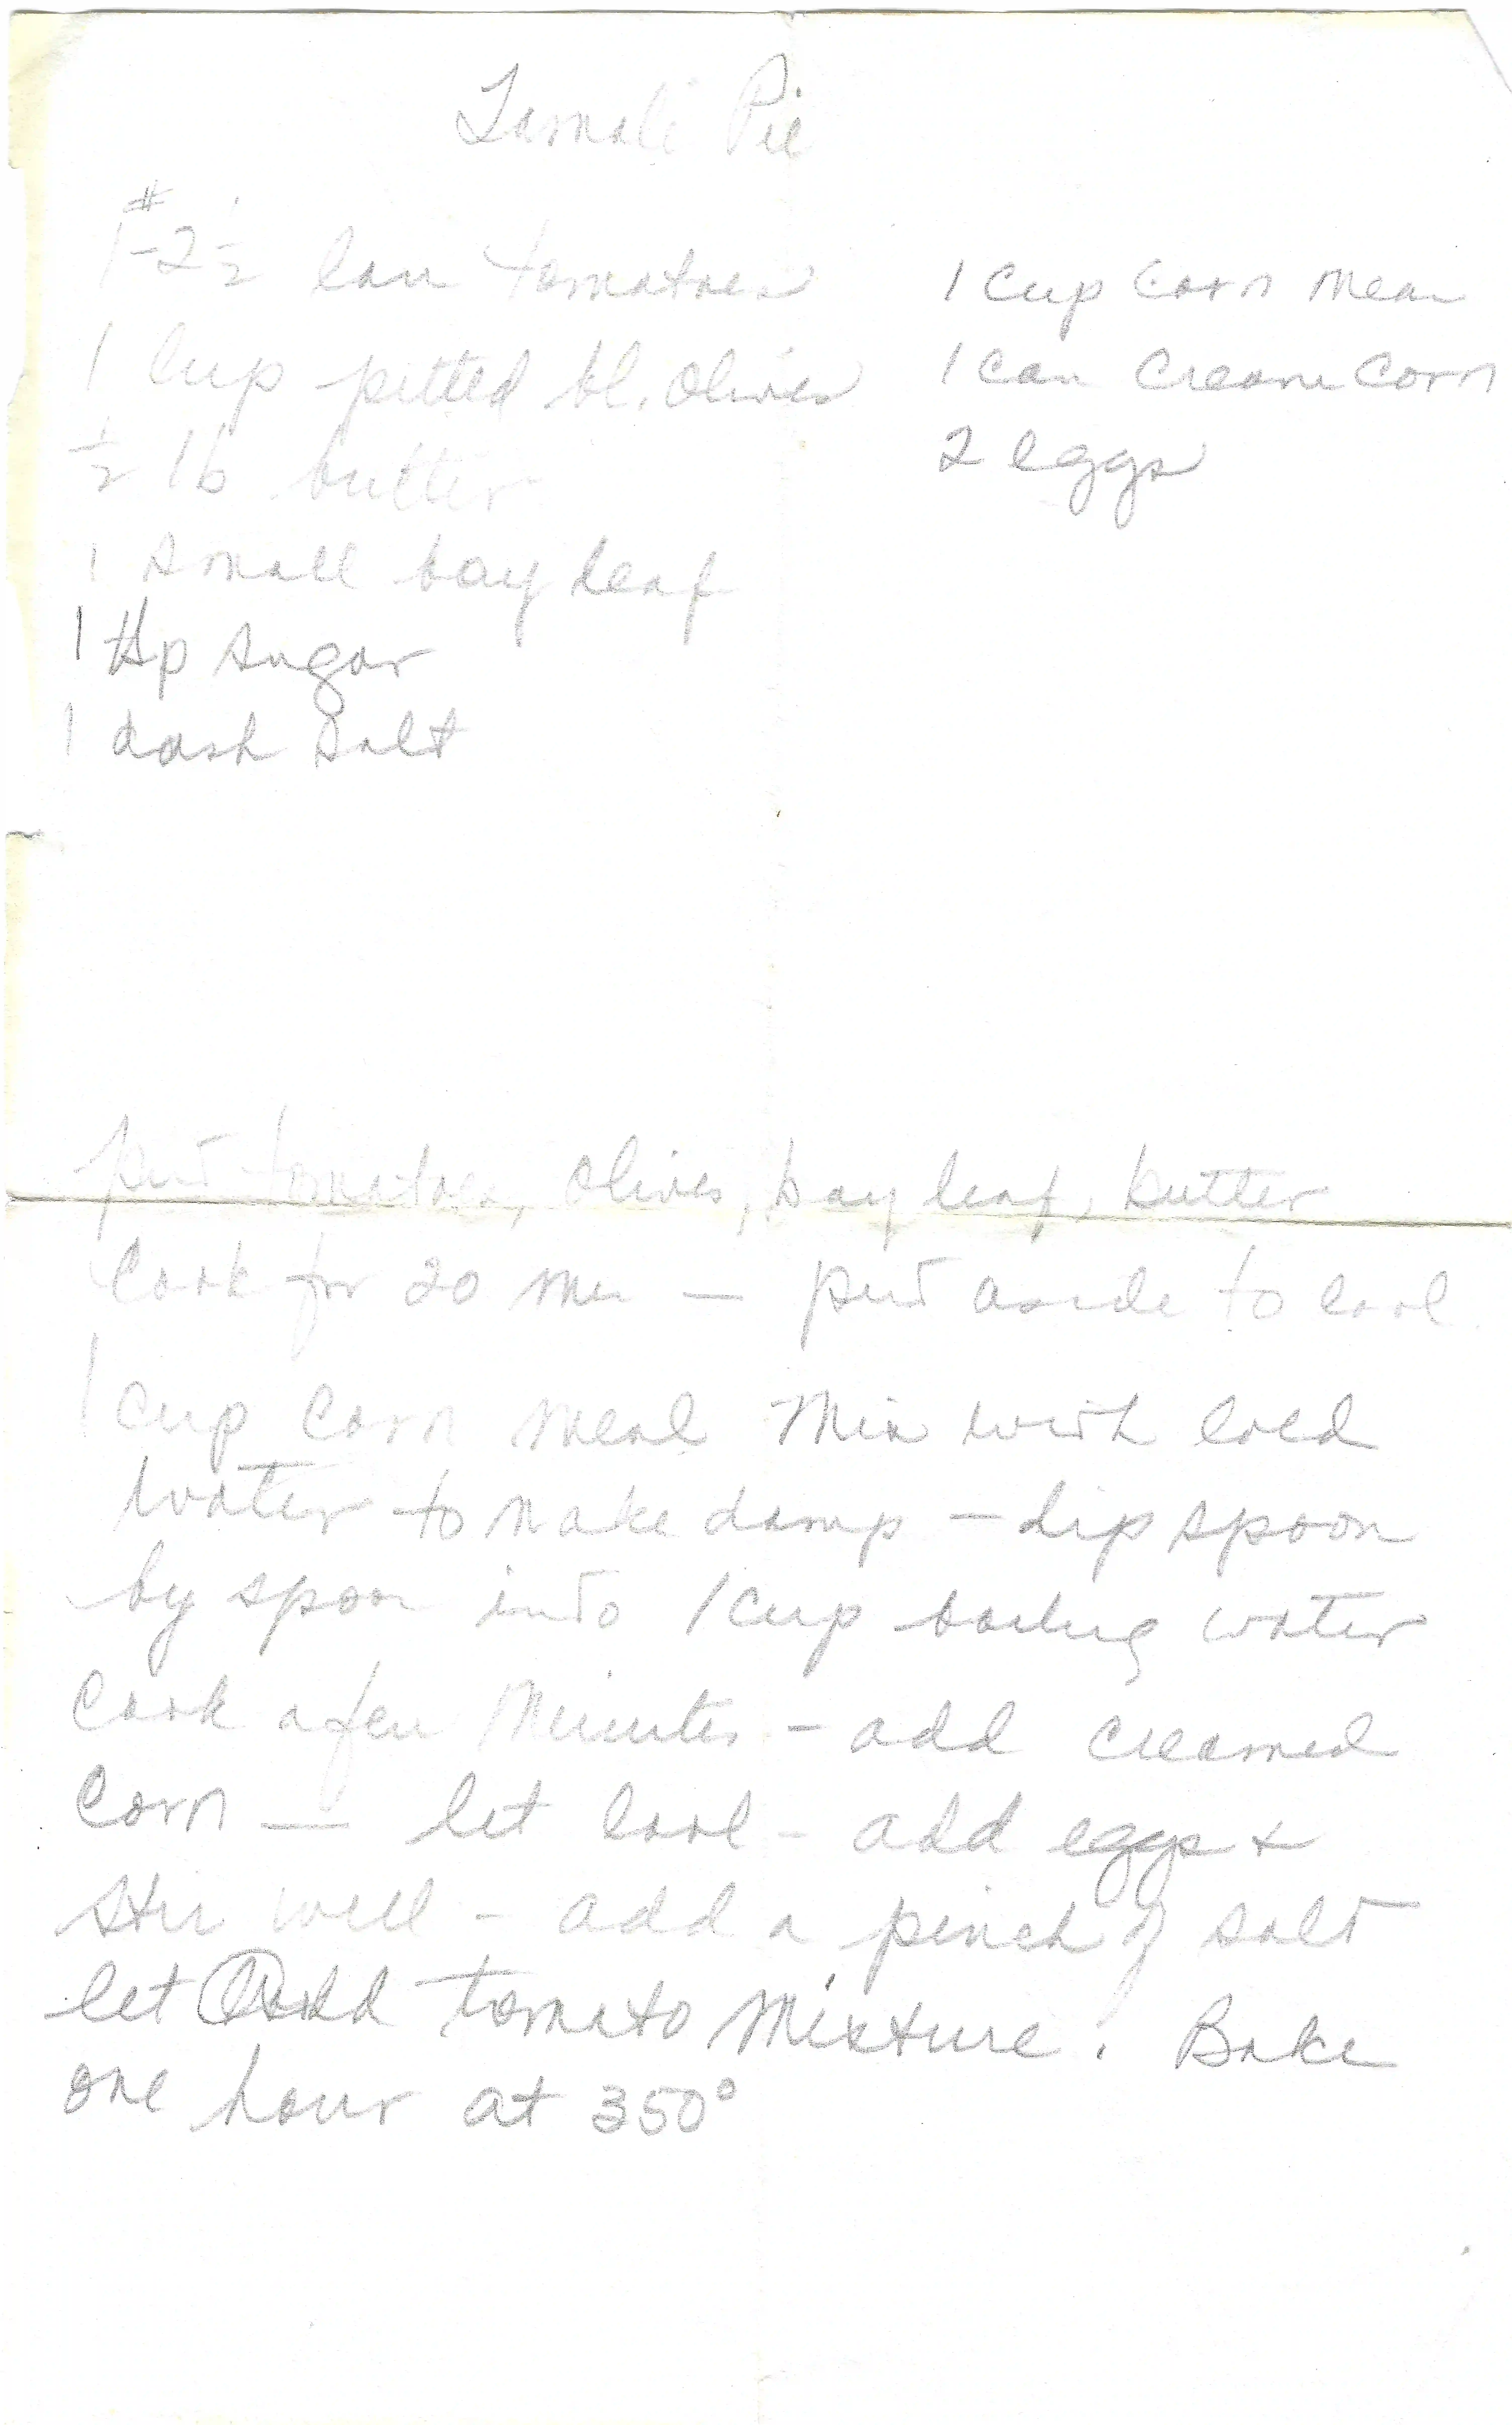 Tamale Pie
1-#2½ can tomatoes
1 cup pitted bl. olives
½ lb butter
1 small bay leaf
1 tsp sugar
1 dash salt
1 cup corn meal
1 can cream corn
2 eggs
put tomatoes, olives, bay leaf, butter
Cook for 20 min — put aside to cool.
1 cup corn meal Mix with cold
water to make damp — dip spoon
by spoon into 1 cup boiling water
Cook a few minutes — add creamed
Corn — let cool — add eggs +
stir well — add a pinch of salt
let add tomato mixture. Bake
one hour at 350°